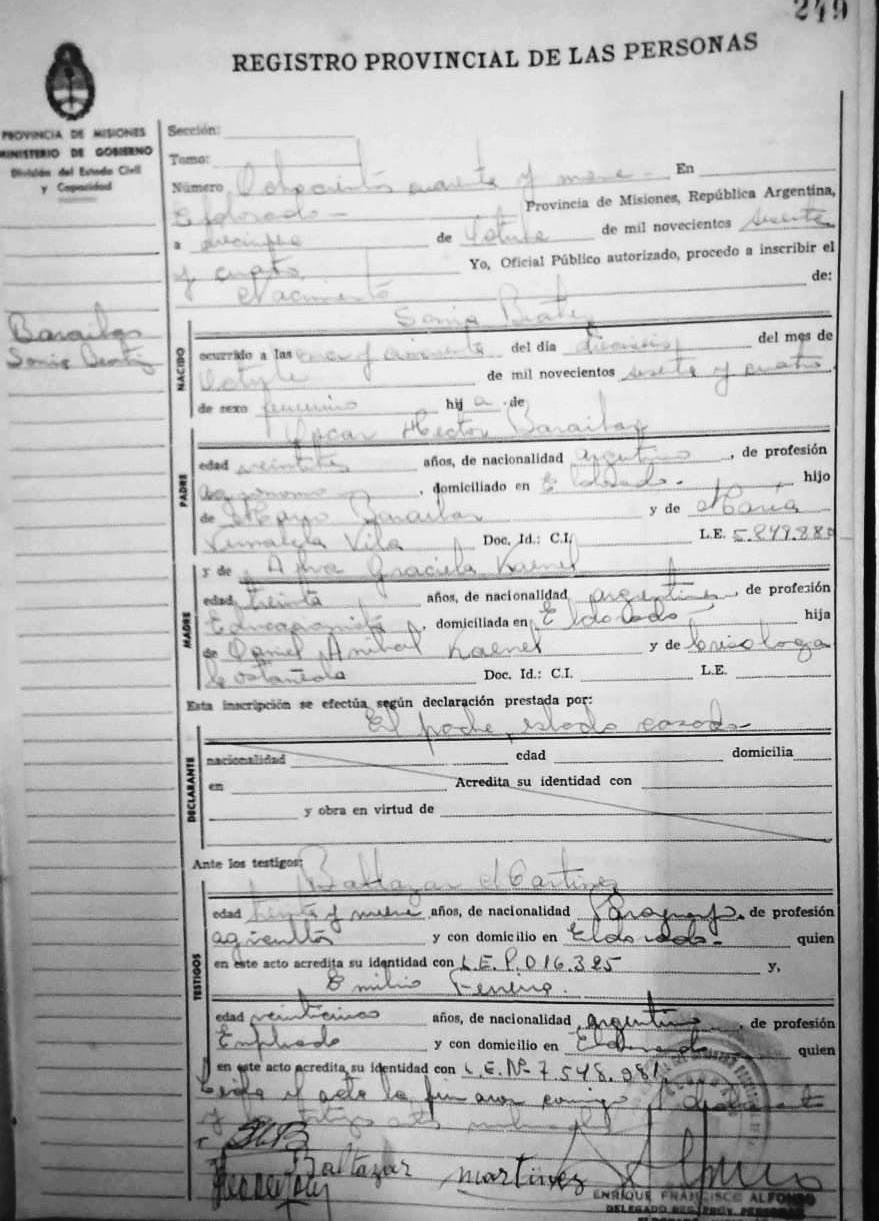 249
REGISTRO PROVINCIAL DE LAS PERSONAS
PROVINCIA DE MISIONES
MINISTERIO DE GOBIERNO
División del Estado Civil
y Capacidad
Sección:
Tomo:
Número Ochocientos cuarenta y nueve - En
Eldorado - Provincia de Misiones, República Argentina,
a de Octubre de mil novecientos sesenta
y cuatro Yo, Oficial Público autorizado, procedo a inscribir el
Nacimiento de:
Sonia Beatriz
Barailas
Sonia Beatriz
NACIDO
ocurrido a las del día dieciseis del mes de
Octubre de mil novecientos sesenta y cuatro
de sexo femenino hij a de
Oscar Hector Barailas
PADRE
edad años, de nacionalidad argentino, de profesión
, domiciliado en Eldorado - hijo
de Barailas y de María
Vila Doc. Id.: C.I. L.E. 5.849.880
MADRE
y de Graciela Kaenel
edad treinta años, de nacionalidad argentina, de profesión
, domiciliada en Eldorado - hija
de Daniel Anibal Kaenel y de Crisologa
Castañeda Doc. Id.: C.I. L.E.
Esta inscripción se efectúa según declaración prestada por:
El padre estado casado
DECLARANTE
nacionalidad edad domicilia
en Acredita su identidad con
y obra en virtud de
Ante los testigos:
Baltazar Martinez
TESTIGOS
edad treinta y nueve años, de nacionalidad Paraguayo, de profesión
agricultor y con domicilio en Eldorado - quien
en este acto acredita su identidad con L.E.P. 016.325 y,
Emilio
edad veinticinco años, de nacionalidad argentino, de profesión
Empleado y con domicilio en Eldorado quien
en este acto acredita su identidad con L.E. Nº 7.548.981
el acta la firmaron conmigo
y
Baltazar Martinez
ENRIQUE FRANCISCO ALFONSO
DELEGADO REG. PROV. PERSONAS